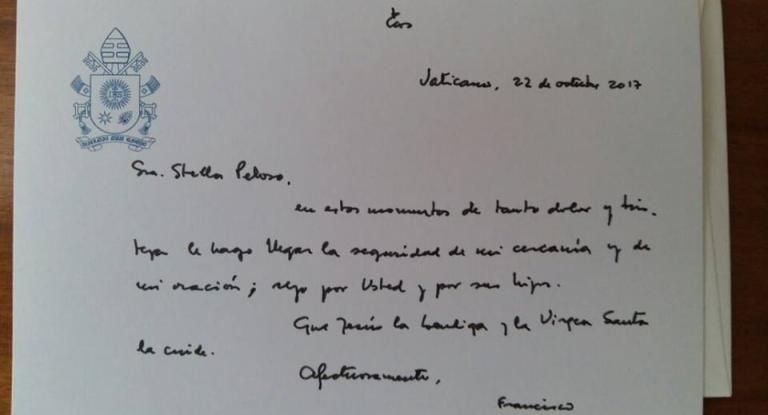 Vaticano, 22 de octubre 2017
Sra. Stella Peloso,
en estos momentos de tanto dolor y tris-
teza le hago llegar la seguridad de mi cercanía y de
mi oración; rezo por Usted y por sus hijos.
Que Jesús la bendiga y la Virgen Santa
la cuide.
Afectuosamente,
Francisco